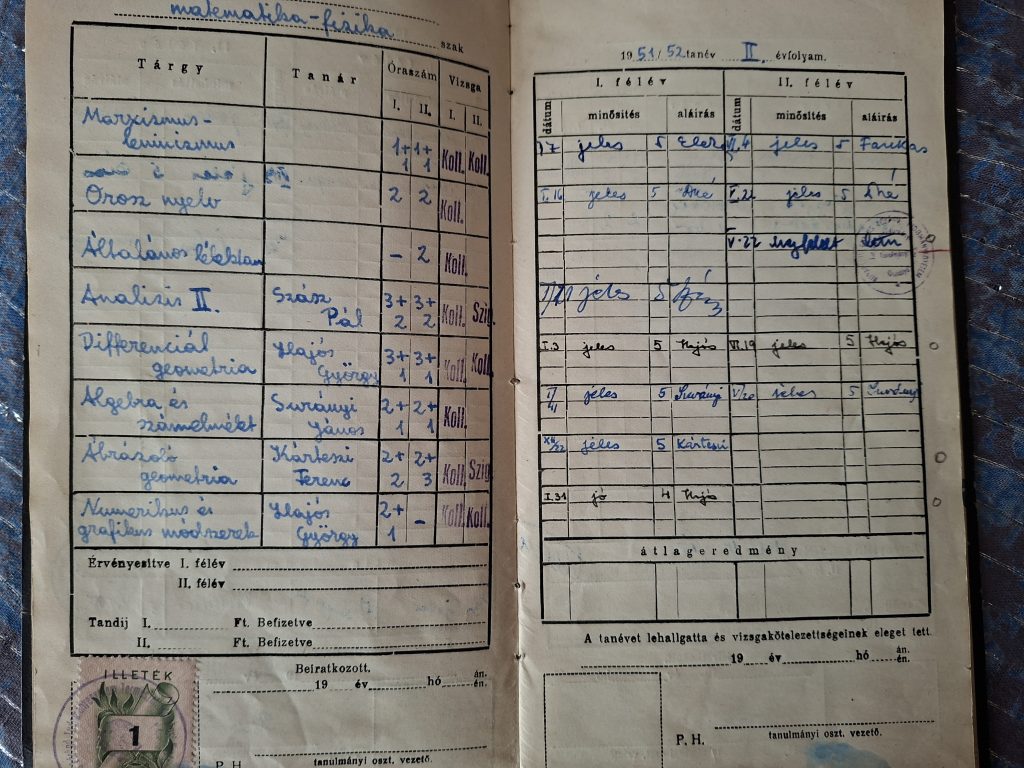 matematika-fizika szak
Tárgy Tanár Óraszám Vizsga
I. II. I. II.
Marxizmus-
leninizmus 1+ 1+ Koll. Koll.
1 1
Orosz nyelv 2 2 Koll.
Általános lélektan - 2 Koll.
Analízis II. Szász 3+ 3+ Koll. Szig.
Pál 2 2
Differenciál Hajós 3+ 3+ Koll. Koll.
geometria György 1 1
Algebra és Surányi 2+ 2+ Koll.
számelmélet János 1 1
Ábrázoló Kárteszi 2+ 2+ Koll. Szig.
geometria Ferenc 2 3
Numerikus és Hajós 2+ - Koll. Koll.
grafikus módszerek György 1
Érvényesitve I. félév
II. félév
Tandij I. Ft. Befizetve
II. Ft. Befizetve
ILLETÉK
1
Beiratkozott.
19 év hó án.
én.
P. H. tanulmányi oszt. vezető.
1951/52 tanév II. évfolyam.
I. félév II. félév
dátum minősítés aláírás dátum minősítés aláírás
jeles 5 VI.4 jeles 5 Farkas
I.16 jeles 5 jeles 5
V.22
jeles 5
I.3 jeles 5 Hajós VI.19 jeles 5 Hajós
jeles 5 Surányi V/20 jeles 5 Surányi
XII/22 jeles 5 Kárteszi
I.31 jó 4 Hajós
átlageredmény
A tanévet lehallgatta és vizsgakötelezettségeinek eleget tett.
19 év hó án.
én.
P. H. tanulmányi oszt. vezető.